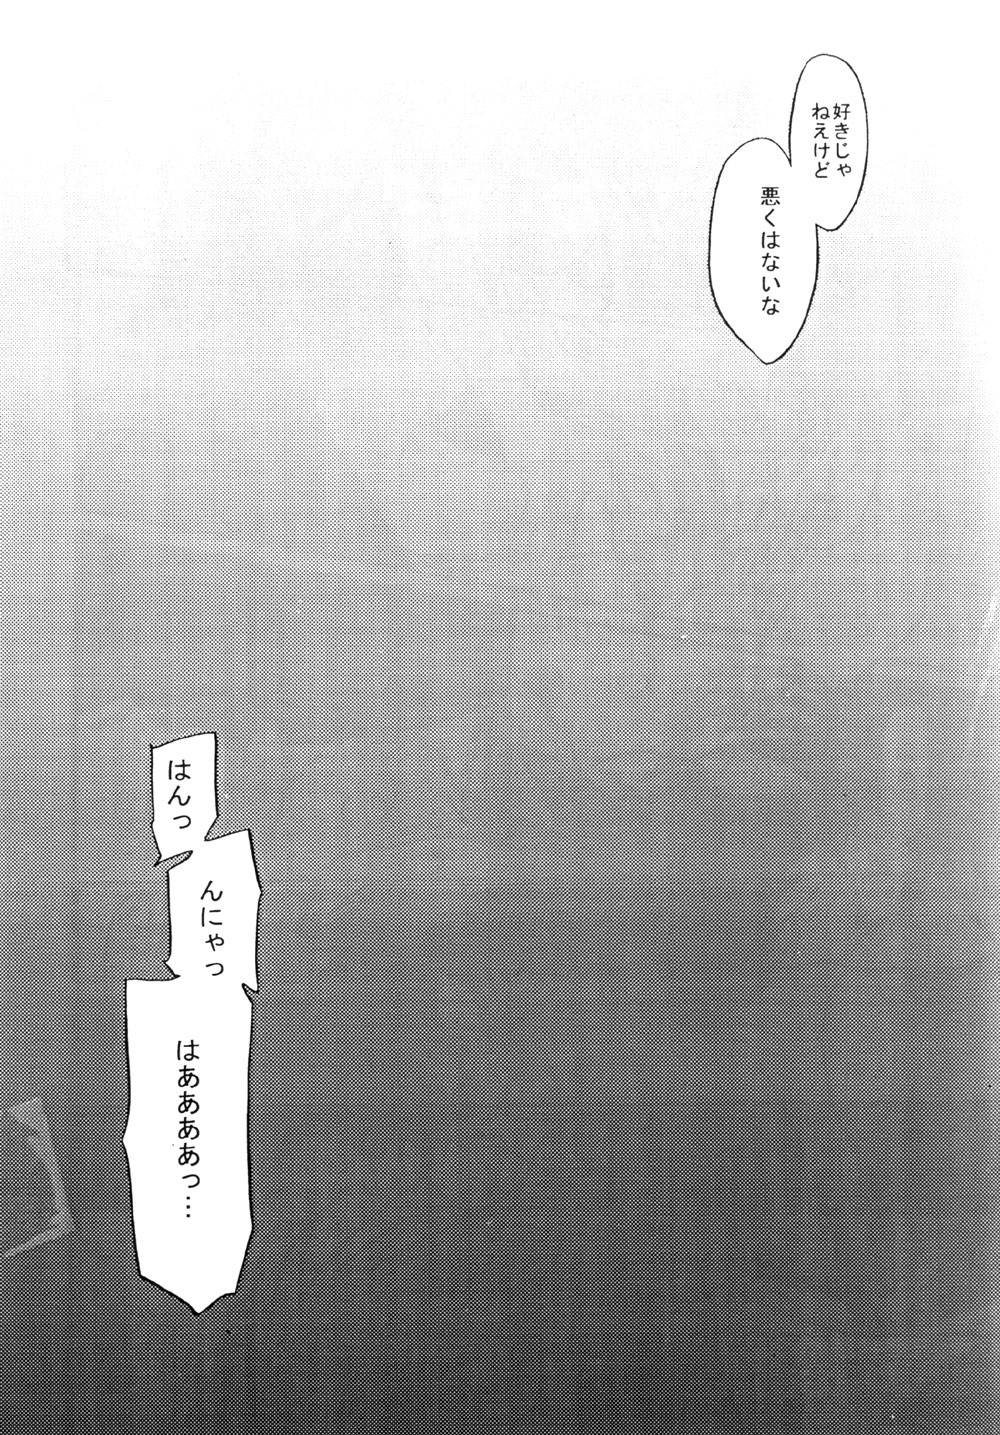 好きじゃ
ねえけど
悪くはないな
はんっ
んにゃっ
はああああっ…